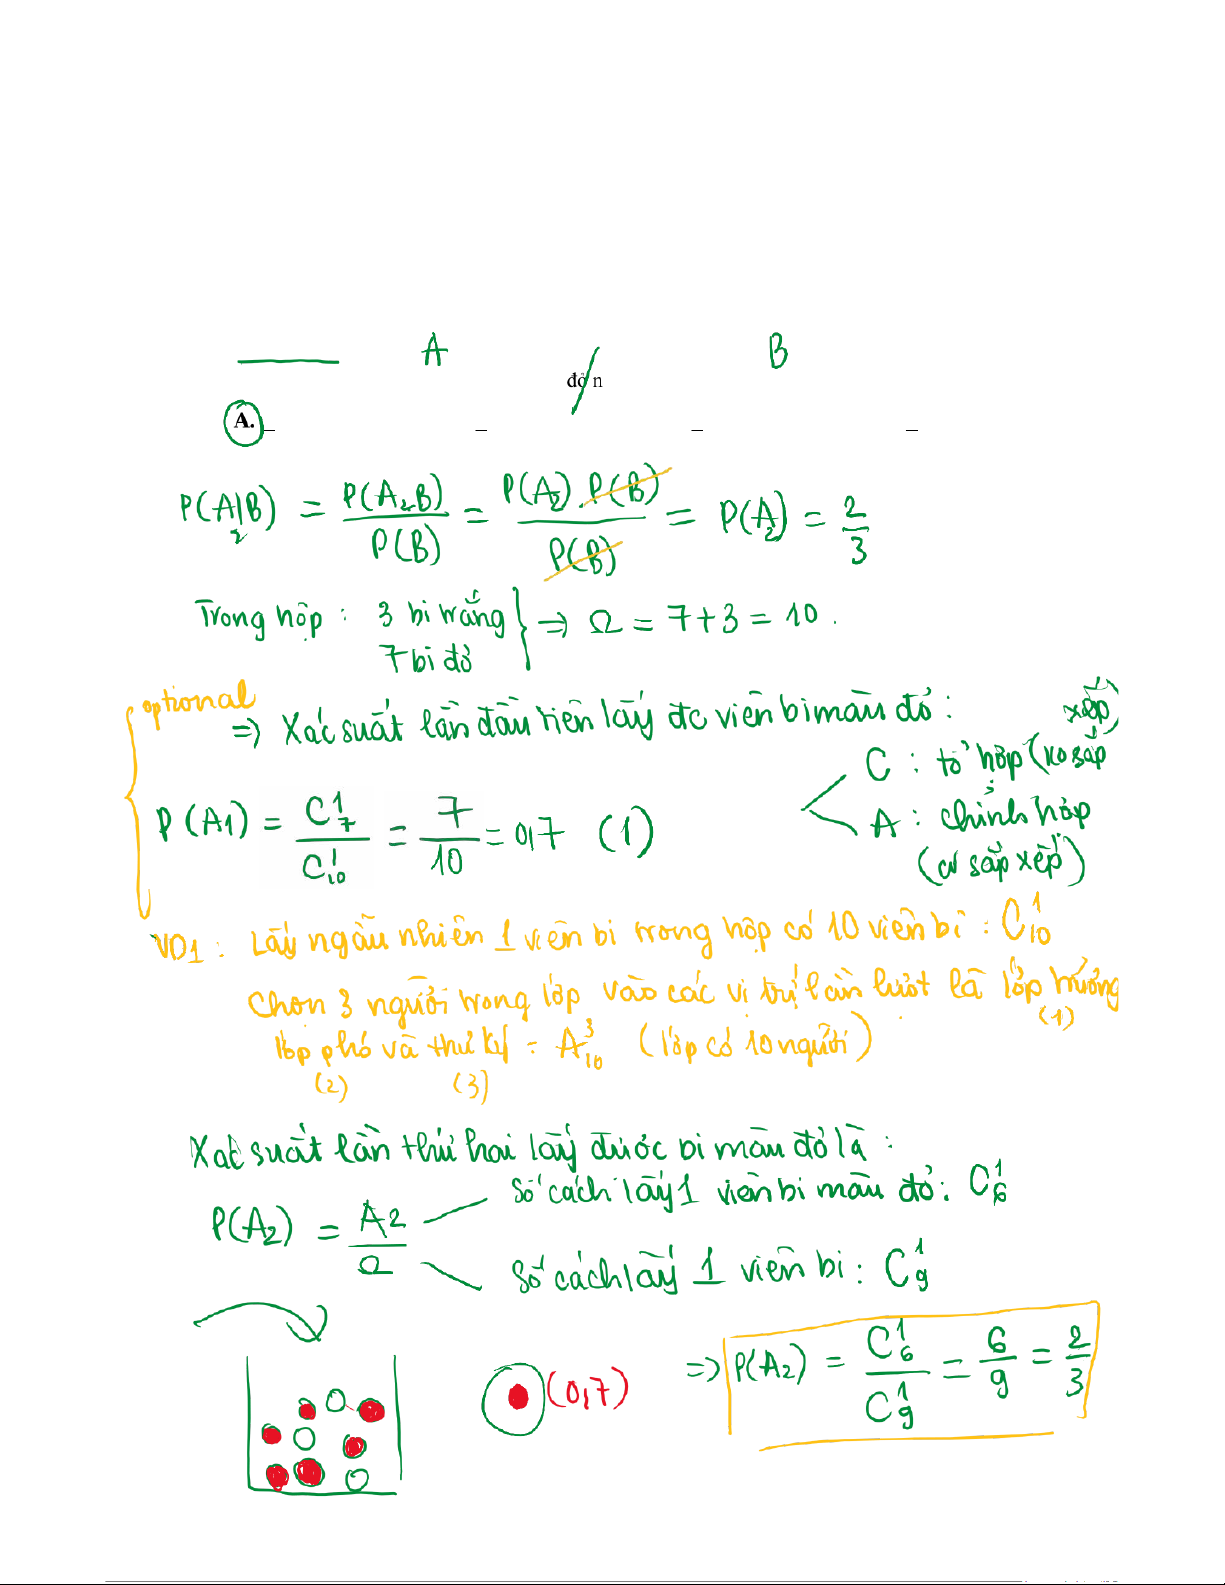 A B
đỏ n
A.
P(A₂|B) = P(A₂.B) / P(B) = P(A₂).P(B) / P(B) = P(A₂) = 2/3
Trong hộp : 3 bi trắng
7 bi đỏ } ⇒ Ω = 7+3 = 10 .
optional
⇒ Xác suất lần đầu tiên lấy đc viên bi màu đỏ :
C : tổ hợp (ko sắp xếp)
P(A1) = C¹₇ / C¹₁₀ = 7/10 = 0,7 (1)
A : chỉnh hợp
(có sắp xếp)
VD1 : Lấy ngẫu nhiên 1 viên bi trong hộp có 10 viên bi : C¹₁₀
Chọn 3 người trong lớp vào các vị trí lần lượt là lớp trưởng
(1)
lớp phó và thư ký = A³₁₀ (lớp có 10 người)
(2) (3)
Xác suất lần thứ hai lấy được bi màu đỏ là :
Số cách lấy 1 viên bi màu đỏ : C¹₆
P(A₂) = A2 / Ω
Số cách lấy 1 viên bi : C¹₉
(0,7)
⇒ P(A₂) = C¹₆ / C¹₉ = 6/9 = 2/3